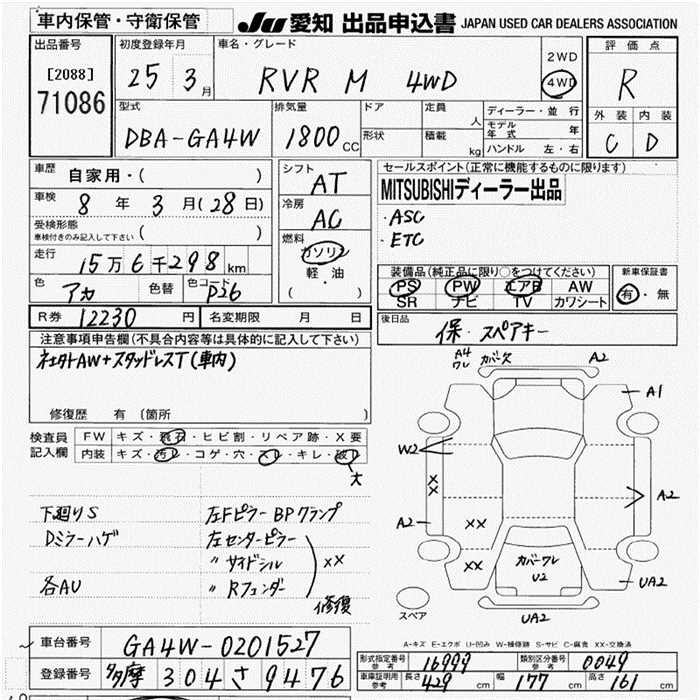 車内保管・守衛保管 JU 愛知 出品申込書 JAPAN USED CAR DEALERS ASSOCIATION
出品番号 初度登録年月 車名・グレード 評価点
[2088] 71086 25 3月 RVR M 4WD 2WD 4WD R
型式 排気量 ドア 定員 人 ディーラー・並行 外装 内装
DBA-GA4W 1800CC 形状 積載 kg モデル年式 年 ハンドル 左・右 C D
車歴 自家用・( ) シフト AT セールスポイント(正常に機能するものに限ります)
車検 8年3月(28日) 冷房 AC MITSUBISHIディーラー出品
受検形態 車検付きのみ記入して下さい ( ) 燃料 ガソリン ・ASC
走行 15万6千298km 軽・油 ( ) ・ETC
色 アカ 色替 色コード P26 装備品(純正品に限り○をつけてください) 新車保証書
PS PW エアB AW 有・無
SR ナビ TV カワシート
R券 12230円 名変期限 月 日 後日品
注意事項申告欄(不具合内容等は具体的に記入して下さい) 保・スペアキー
社外AW+スタッドレスT(車内)
修復歴 有 (箇所
A4 ワレ カバーX A2
A1
検査員 FW キズ・飛石・ヒビ割・リペア跡・X要
記入欄 内装 キズ・汚レ・コゲ・穴・スレ・キレ・破レ
大
W2
XX
A2
A2 XX
下廻りS 左Fピラー BPクランプ
Dミラーハゲ 左センターピラー
〃 サイドシル XX
各AU 〃 Rフェンダー
修復
XX カバーワレ U2
UA2
スペア UA2
A-キズ E-エクボ U-凹み W-補修跡 S-サビ C-腐食 XX-交換済
車台番号 GA4W-0201527
形式指定番号 参考 16999 類別区分番号 参考 0049
登録番号 多摩 304 さ 9476
車庫証明用 参考 長さ 429cm 幅 177cm 高さ 161cm